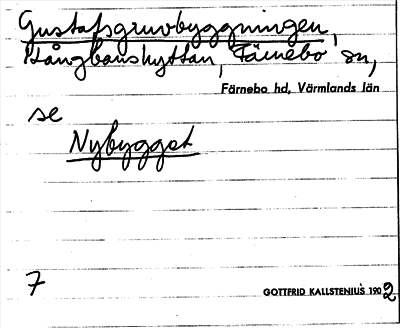 Gustafsgruvbyggningen,
Långbanshyttan, Färnebo sn,
Färnebo hd, Värmlands län
se
Nybygget
7
GOTTFRID KALLSTENIUS 1902